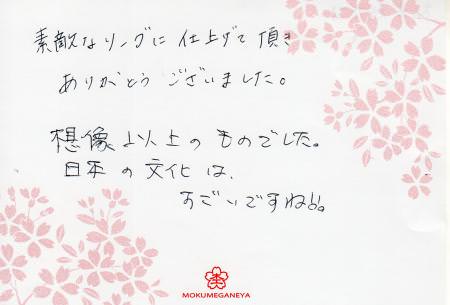 素敵なリングに仕上げて頂き
ありがとうございました。
想像以上のものでした。
日本の文化は、
すごいですね!!。
MOKUMEGANEYA